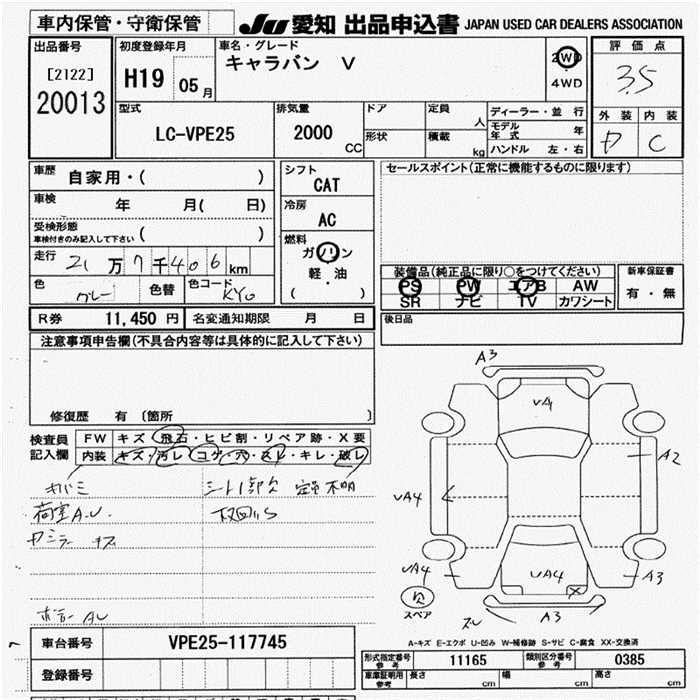 車内保管・守衛保管
JU 愛知 出品申込書 JAPAN USED CAR DEALERS ASSOCIATION
出品番号
[2122]
20013
初度登録年月
H19 05月
車名・グレード
キャラバン V
2WD
4WD
評価点
3.5
外装 内装
C
型式
LC-VPE25
排気量
2000 CC
ドア
形状
定員 人
積載 kg
ディーラー・並行
モデル年式 年
ハンドル 左・右
車歴 自家用・( )
車検 年 月( 日)
受検形態
車検付きのみ記入して下さい ( )
走行 21万7千406km
色 グレー 色替 色コード KY0
シフト
CAT
冷房
AC
燃料
ガソリン
軽・油
( )
セールスポイント(正常に機能するものに限ります)
装備品(純正品に限り○をつけてください)
PS PW エアB AW
SR ナビ TV カワシート
新車保証書
有・無
R券 11,450円 名変通知期限 月 日
後日品
注意事項申告欄(不具合内容等は具体的に記入して下さい)
修復歴 有〔箇所 〕
検査員記入欄
FW キズ・飛石・ヒビ割・リペア跡・X要
内装 キズ・汚レ・コゲ・穴・スレ・キレ・破レ
荷室A.U.
不明
A3
UA4
A2
UA4
UA4
UA4
A3
スペア
A3
A-キズ E-エクボ U-凹み W-補修跡 S-サビ C-腐食 XX-交換済
車台番号 VPE25-117745
登録番号
形式指定番号 参考 11165 類別区分番号 参考 0385
車庫証明用 参考 長さ cm 幅 cm 高さ cm